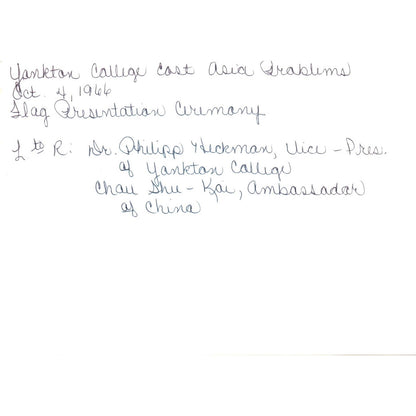 Yankton College East Asia Problems
Oct. 4, 1966
Flag Presentation Ceremony
L to R: Dr. Philipp Heckman, Vice-Pres.
of Yankton College
Chau Shu-Kai, Ambassador
of China